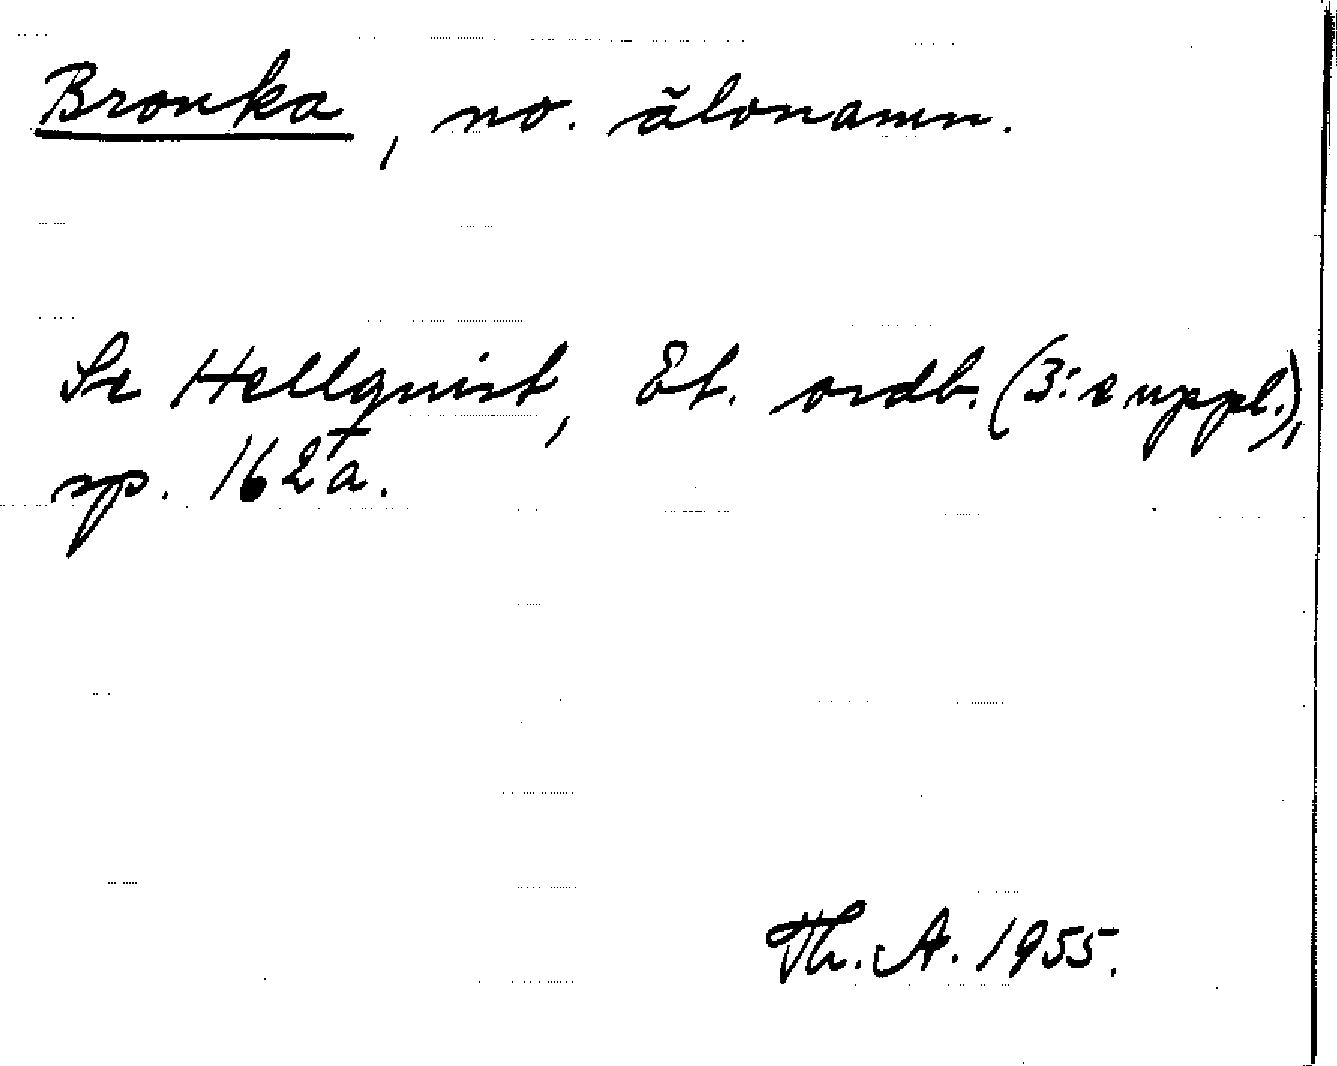 Bronka, no. älvnamn.
Se Hellquist, Et. ordb. (3:e uppl.),
sp. 162 a.
Th. A. 1955.